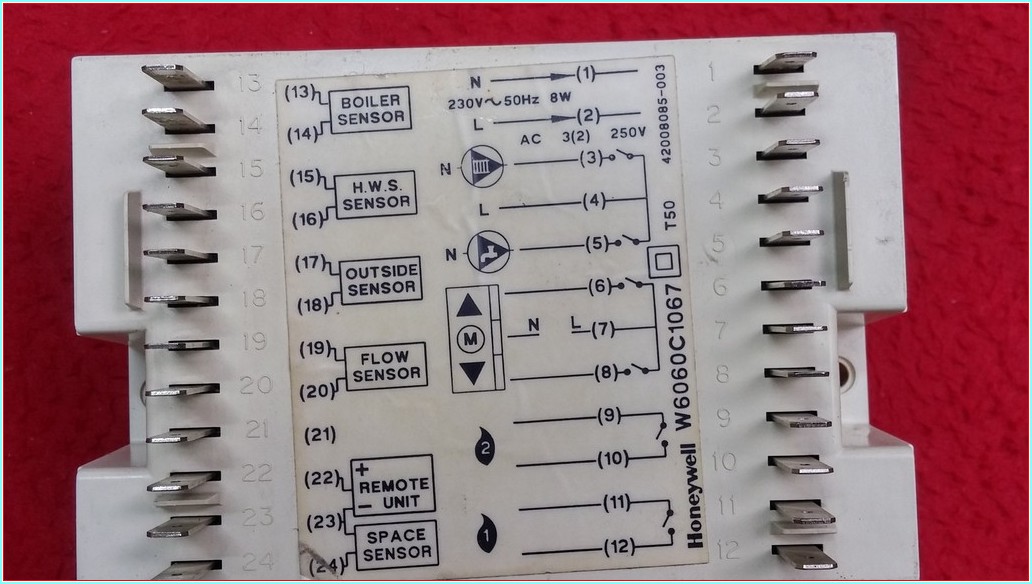 13
14
15
16
17
18
19
20
21
22
23
24
(13)
BOILER
SENSOR
(14)
(15)
H.W.S.
SENSOR
(16)
(17)
OUTSIDE
SENSOR
(18)
(19)
FLOW
SENSOR
(20)
(21)
(22)
+
REMOTE
− UNIT
(23)
SPACE
SENSOR
(24)
N (1)
230V∼50Hz 8W
L (2)
AC 3(2) 250V
N (3)
L (4)
N (5)
(6)
M N L (7)
(8)
(9)
2
(10)
(11)
1
(12)
42008085-003
T50
Honeywell W6060C1067
1
2
3
4
5
6
7
8
9
10
11
12